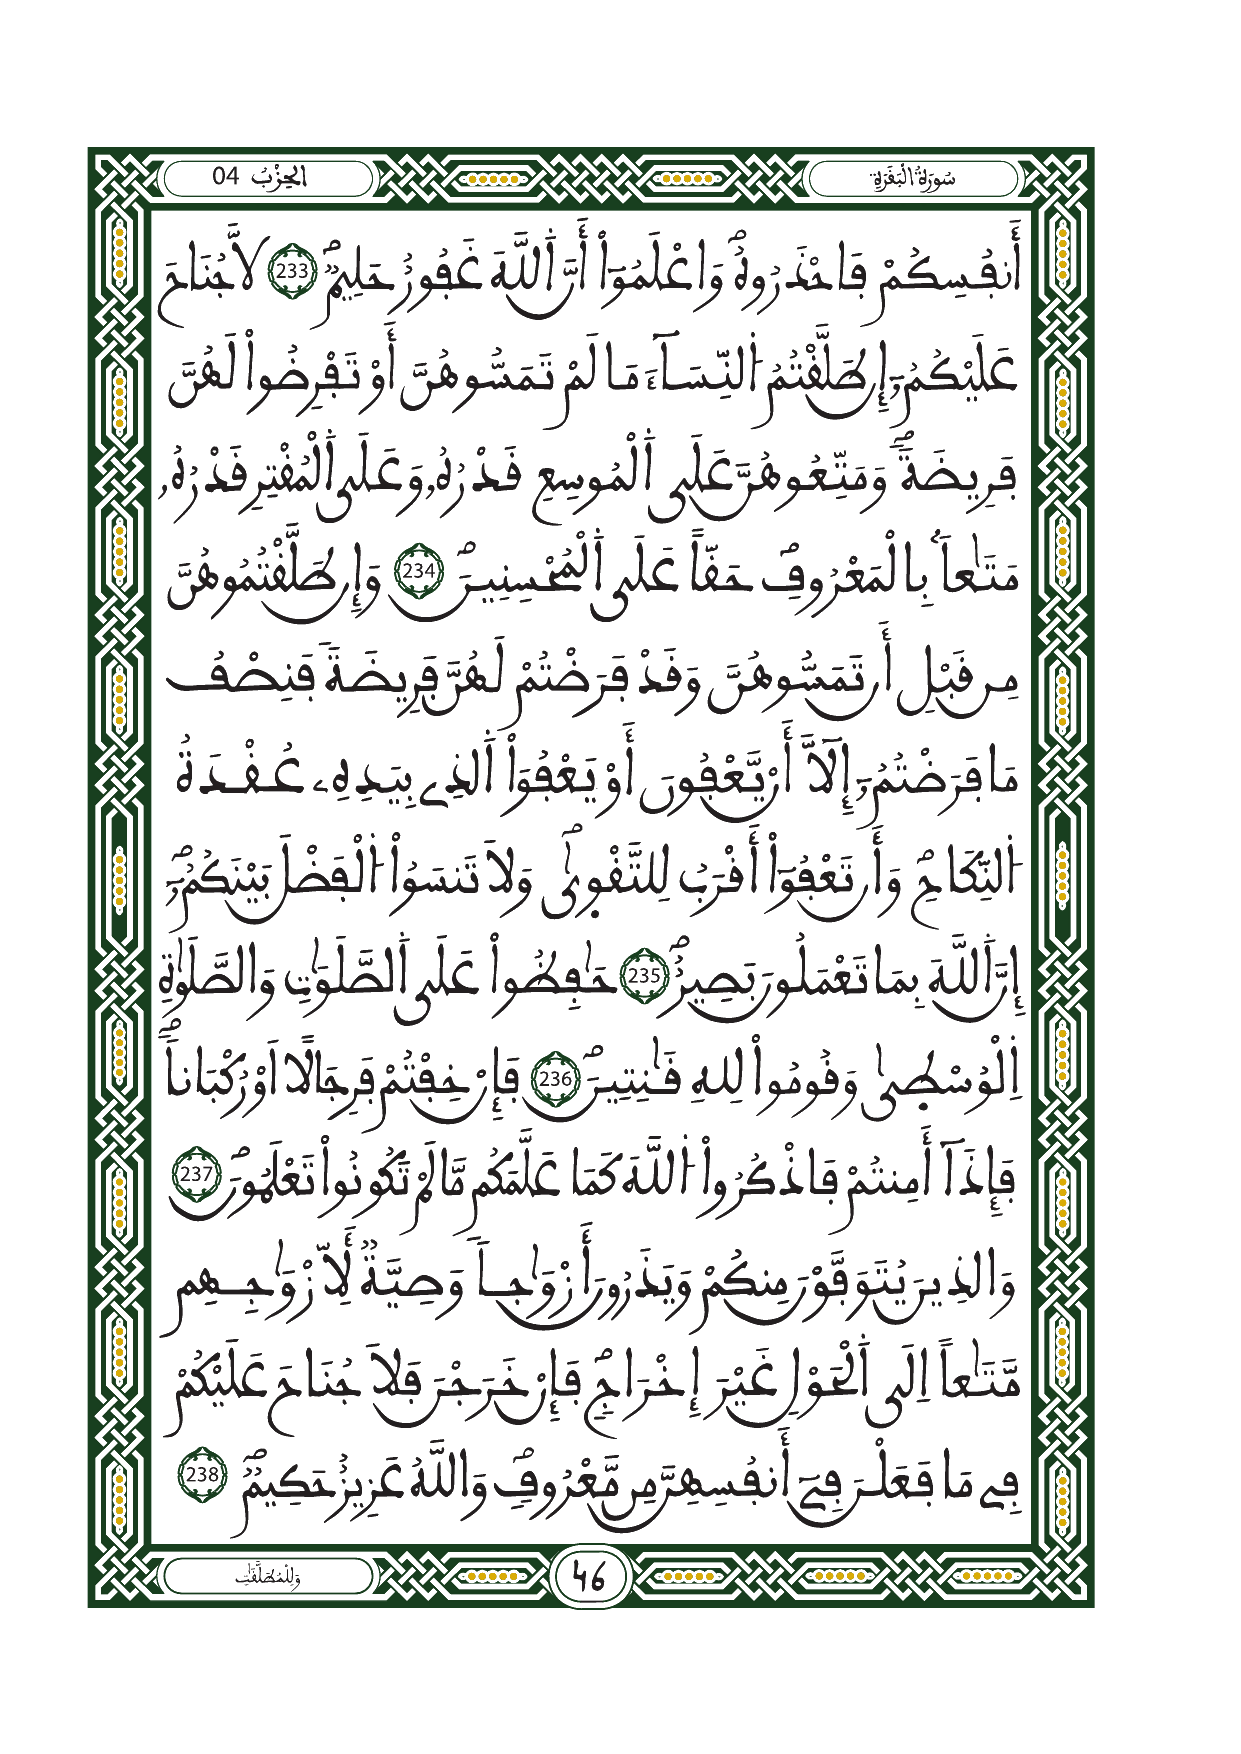 سُورَةُ الْبَقَرَةِ
الحِزْبُ 04
أَنفُسِكُمْ فَاحْذَرُوهُ وَاعْلَمُوٓاْ أَنَّ اَ۬للَّهَ غَفُورٌ حَلِيمٞ 233 لَّا جُنَاحَ
عَلَيْكُمُۥٓ إِن طَلَّقْتُمُ اُ۬لنِّسَآءَ مَا لَمْ تَمَسُّوهُنَّ أَوْ تَفْرِضُواْ لَهُنَّ
فَرِيضَةٗ وَمَتِّعُوهُنَّ عَلَى اَ۬لْمُوسِعِ قَدْرُهُۥ وَعَلَى اَ۬لْمُقْتِرِ قَدْرُهُۥ
مَتَٰعاَۢ بِالْمَعْرُوفِ حَقّاً عَلَى اَ۬لْمُحْسِنِينَ 234 وَإِن طَلَّقْتُمُوهُنَّ
مِن قَبْلِ أَن تَمَسُّوهُنَّ وَقَدْ فَرَضْتُمْ لَهُنَّ فَرِيضَةٗ فَنِصْفُ
مَا فَرَضْتُمُۥٓ إِلَّآ أَنْ يَّعْفُونَ أَوْ يَعْفُوَاْ اَ۬لذِے بِيَدِهِۦ عُقْدَةُ
اُ۬لنِّكَاحِ وَأَن تَعْفُوٓاْ أَقْرَبُ لِلتَّقْوٜىٰ وَلَا تَنسَوُاْ اُ۬لْفَضْلَ بَيْنَكُمُۥٓ
إِنَّ اَ۬للَّهَ بِمَا تَعْمَلُونَ بَصِيرٌ 235 حَٰفِظُواْ عَلَى اَ۬لصَّلَوَٰتِ وَالصَّلَوٰةِ
اِ۬لْوُسْطٜىٰ وَقُومُواْ لِلهِ قَٰنِتِينَ 236 فَإِنْ خِفْتُمْ فَرِجَالًا اَوْ رُكْبَاناٗ
فَإِذَآ أَمِنتُمْ فَاذْكُرُواْ اُ۬للَّهَ كَمَا عَلَّمَكُم مَّا لَمْ تَكُونُواْ تَعْلَمُونَ 237
وَالذِينَ يُتَوَفَّوْنَ مِنكُمْ وَيَذَرُونَ أَزْوَٰجاٗ وَصِيَّةٞ لِّأَزْوَٰجِهِم
مَّتَٰعاً اِلَى اَ۬لْحَوْلِ غَيْرَ إِخْرَاجٖ فَإِنْ خَرَجْنَ فَلَا جُنَاحَ عَلَيْكُمْ
فِے مَا فَعَلْنَ فِےٓ أَنفُسِهِنَّ مِن مَّعْرُوفٖ وَاللَّهُ عَزِيزٌ حَكِيمٞ 238
46
وَلِلْمُطَلَّقَٰتِ